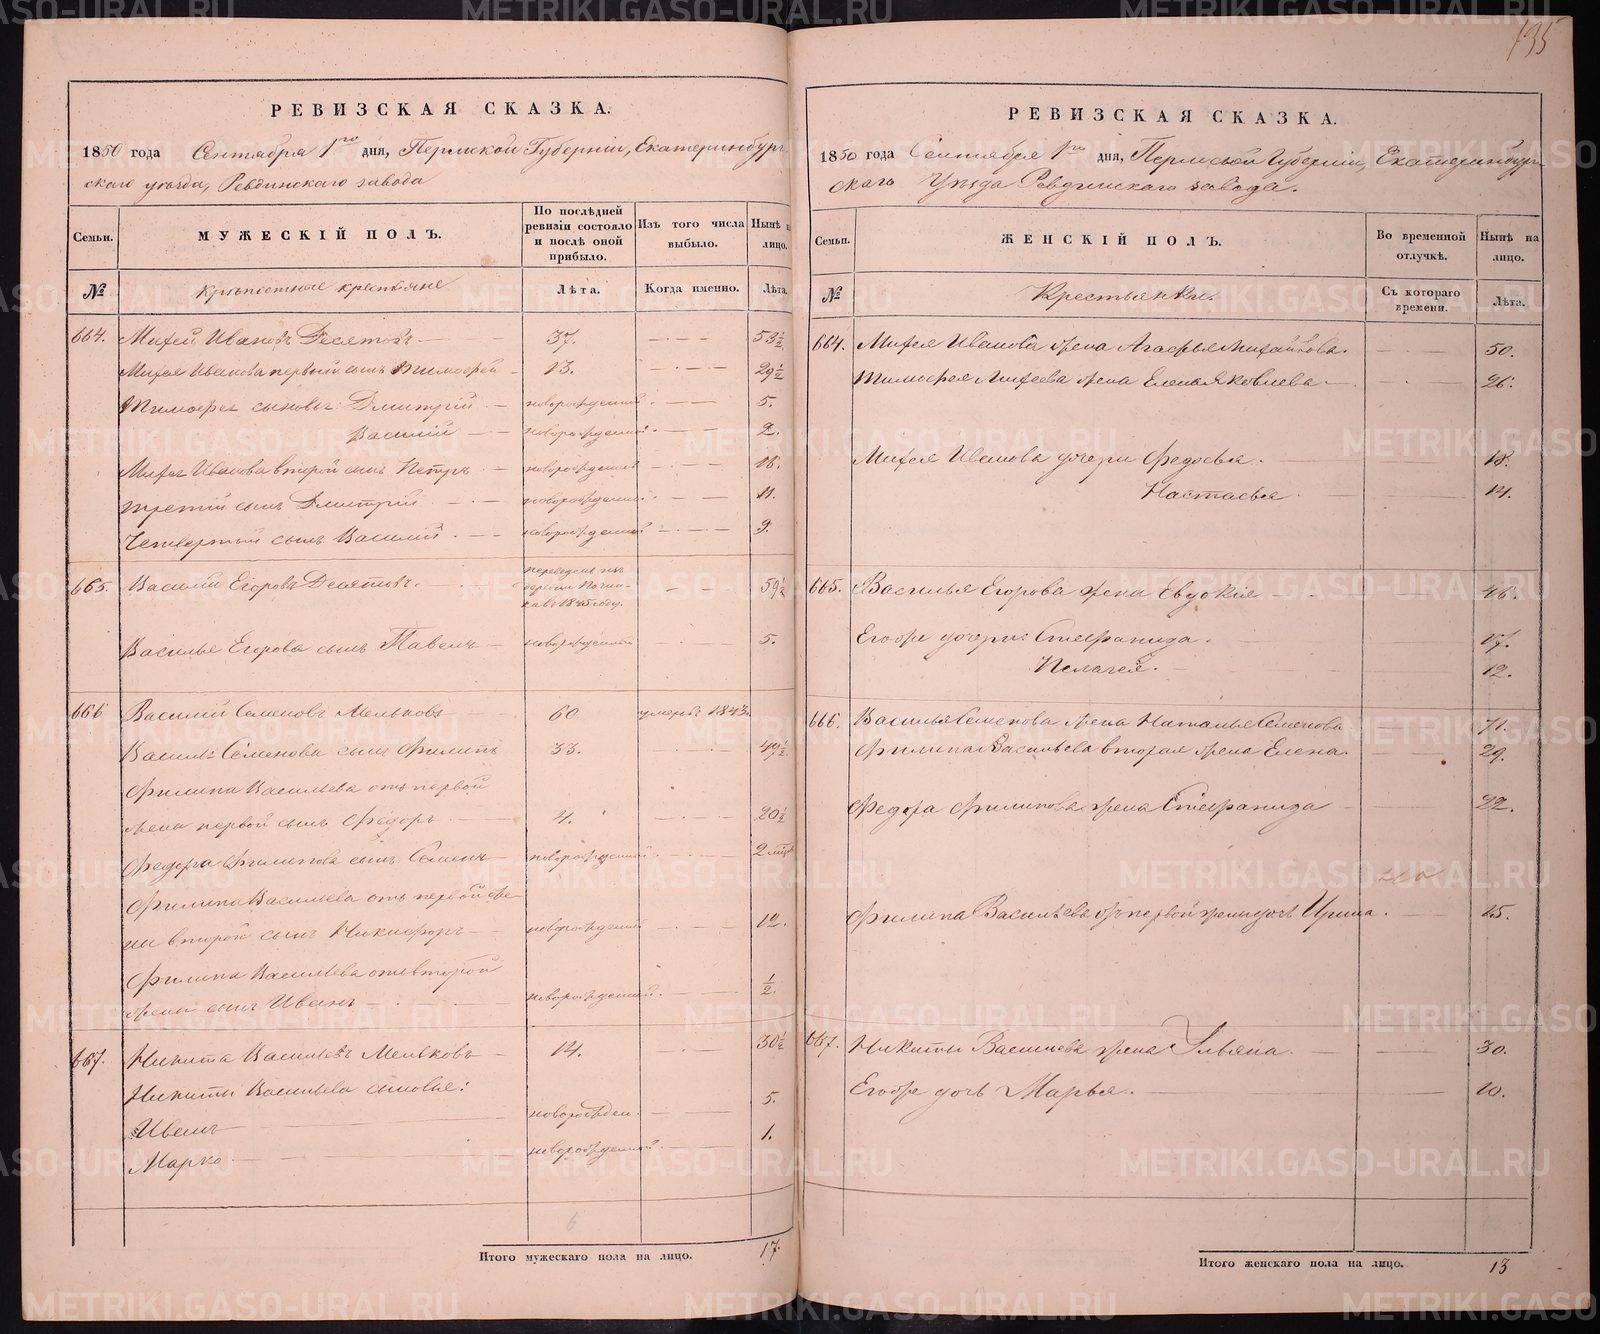 135
РЕВИЗСКАЯ СКАЗКА.
1850 года Сентября 1го дня, Пермской Губернии, Екатеринбург
скаго уезда, Ревдинскаго завода
Семьи. МУЖЕСКІЙ ПОЛЪ. По послѣдней ревизіи состояло и послѣ оной прибыло. Изъ того числа выбыло. Нынѣ на лицо.
№ Крѣпостные крестьяне Лѣта. Когда именно. Лѣта.
664. Михей Ивановъ Десятовъ 37. 53 ½
Михея Иванова первый сынъ Тимофей 13. 29 ½
Тимофея сыновья Дмитрій новорожденный 5.
Василій новорожденный 2.
Михея Иванова второй сынъ Петръ новорожденный 16.
третій сынъ Дмитрій новорожденный 11.
Четвертый сынъ Василий новорожденный 9.
665. Василій Егоровъ Десятовъ. переведенъ въ 1845 году. 59 ½
Василья Егорова сынъ Павелъ новорожденный 5.
666 Василий Семеновъ Мельковъ 60 умеръ 1843.
Василья Семенова сынъ Филипъ 33. 49 ½
Филипа Васильева отъ первой
жены первой сынъ Федоръ 4. 20 ½
Федора Филипова сынъ Семенъ новорожденный 2 мѣс
Филипа Васильева отъ первой же-
ны второй сынъ Никифоръ новорожденный 12.
Филипа Васильева отъ второй
жены сынъ Иванъ новорожденный. ½
667. Никита Васильевъ Мельковъ 14. 30 ½
Никиты Васильева сыновья:
Иванъ новорожден. 5.
Марко новорожденный 1.
6
Итого мужескаго пола на лицо. 17.
РЕВИЗСКАЯ СКАЗКА.
1850 года Сентября 1го дня, Пермской Губерніи, Екатеринбург
скаго Уѣзда Ревдинскаго завода.
Семьи. ЖЕНСКІЙ ПОЛЪ. Во временной отлучкѣ. Нынѣ на лицо.
№ Крестьянки. Съ котораго времени. Лѣта.
664. Михея Иванова жена Агафья Михайлова. 50.
Тимофея Михеева жена Елена Яковлева 26.
Михея Иванова дочери Федосья. 18.
Настасья 14.
665. Василья Егорова жена Евдокия 46.
Егоже дочери: Степанида. 17.
Пелагея. 12.
666. Василья Семенова жена Наталья Семенова 71.
Филипа Васильева вторая жена Елена 29.
Федора Филипова жена Степанида 22.
Филипа Васильева отъ первой жены дочь Ирина. 15.
667. Никиты Васильева жена Ульяна. 30.
Егоже дочь Марья. 10.
Итого женскаго пола на лицо. 13
METRIKI.GASO-URAL.RU